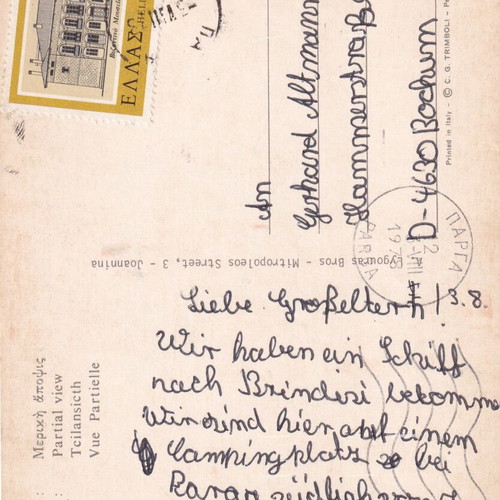 ΕΛΛΑΣ
HELL
An
Gerhard Altmann
Hammerstraße
D-4630 Bochum
Printed in Italy - © C. G. TRIMBOLI - Pe
ygouras Bros - Mitropoleos Street, 3 - Joannina
ΠΑΡΓΑ
PARGA
Liebe Großeltern! 3.8.
Wir haben ein Schiff
nach Brindisi bekomme
Wir sind hier auf einem
Campingplatz bei
Parga südlich
Μερική ἄποψις
Partial view
Teilansicth
Vue Partielle